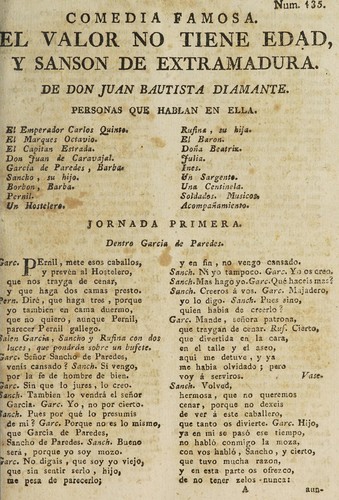 Num. 135.
COMEDIA FAMOSA.
EL VALOR NO TIENE EDAD,
Y SANSON DE EXTRAMADURA.
DE DON JUAN BAUTISTA DIAMANTE.
PERSONAS QUE HABLAN EN ELLA.
El Emperador Carlos Quinto.
El Marques Octavio.
El Capitan Estrada.
Don Juan de Caravajal.
Garcia de Paredes, Barba.
Sancho, su hijo.
Borbon, Barba.
Pernil.
Un Hostelero.
Rufina, su hija.
El Baron.
Doña Beatriz.
Julia.
Ines.
Un Sargento.
Una Centinela.
Soldados. Musicos.
Acompañamiento.
JORNADA PRIMERA.
Dentro Garcia de Paredes.
Garc. Pernil, mete esos caballos,
y prevén al Hostelero,
que nos trayga de cenar,
y que haga dos camas presto.
Pern. Diré, que haga tres, porque
yo tambien en cama duermo,
que no quiero, aunque Pernil,
parecer Pernil gallego.
Salen Garcia, Sancho y Rufina con dos
luces, que pondrán sobre un bufete.
Garc. Señor Sancho de Paredes,
venis cansado? Sanch. Si vengo,
por la fé de hombre de bien.
Garc. Sin que lo jures, lo creo.
Sanch. Tambien lo vendrá el señor
Garcia. Garc. Yo, no por cierto.
Sanch. Pues por qué lo presumis
de mi? Garc. Porque no es lo mismo,
que Garcia de Paredes,
Sancho de Paredes. Sanch. Bueno
será, porque yo soy mozo.
Garc. No digais, que soy yo viejo,
que sin sentir serlo, hijo,
me pesa de parecerlo;
y en fin, no vengo cansado.
Sanch. Ni yo tampoco. Garc. Yo os creo.
Sanch. Mas hago yo. Garc. Qué haceis mas?
Sanch. Creeros á vos. Garc. Majadero,
yo lo digo. Sanch. Pues sino,
quien habia de creerlo?
Garc. Mande, señora patrona,
que traygan de cenar. Ruf. Cierto,
que divertida en la cara,
en el talle y el aseo,
aqui me detuve, y ya
me habia olvidado; pero
voy á serviros. Vase.
Sanch. Volved,
hermosa, que no queremos
cenar, porque no dexeis
de ver á este caballero,
que tanto os divierte. Garc. Hijo,
ya en mi se pasó ese tiempo,
no habló conmigo la moza,
con vos habló, Sancho, y cierto,
que tuvo mucha razon,
y en esta parte os ofrezco,
de no tener zelos nunca:
A
aun-